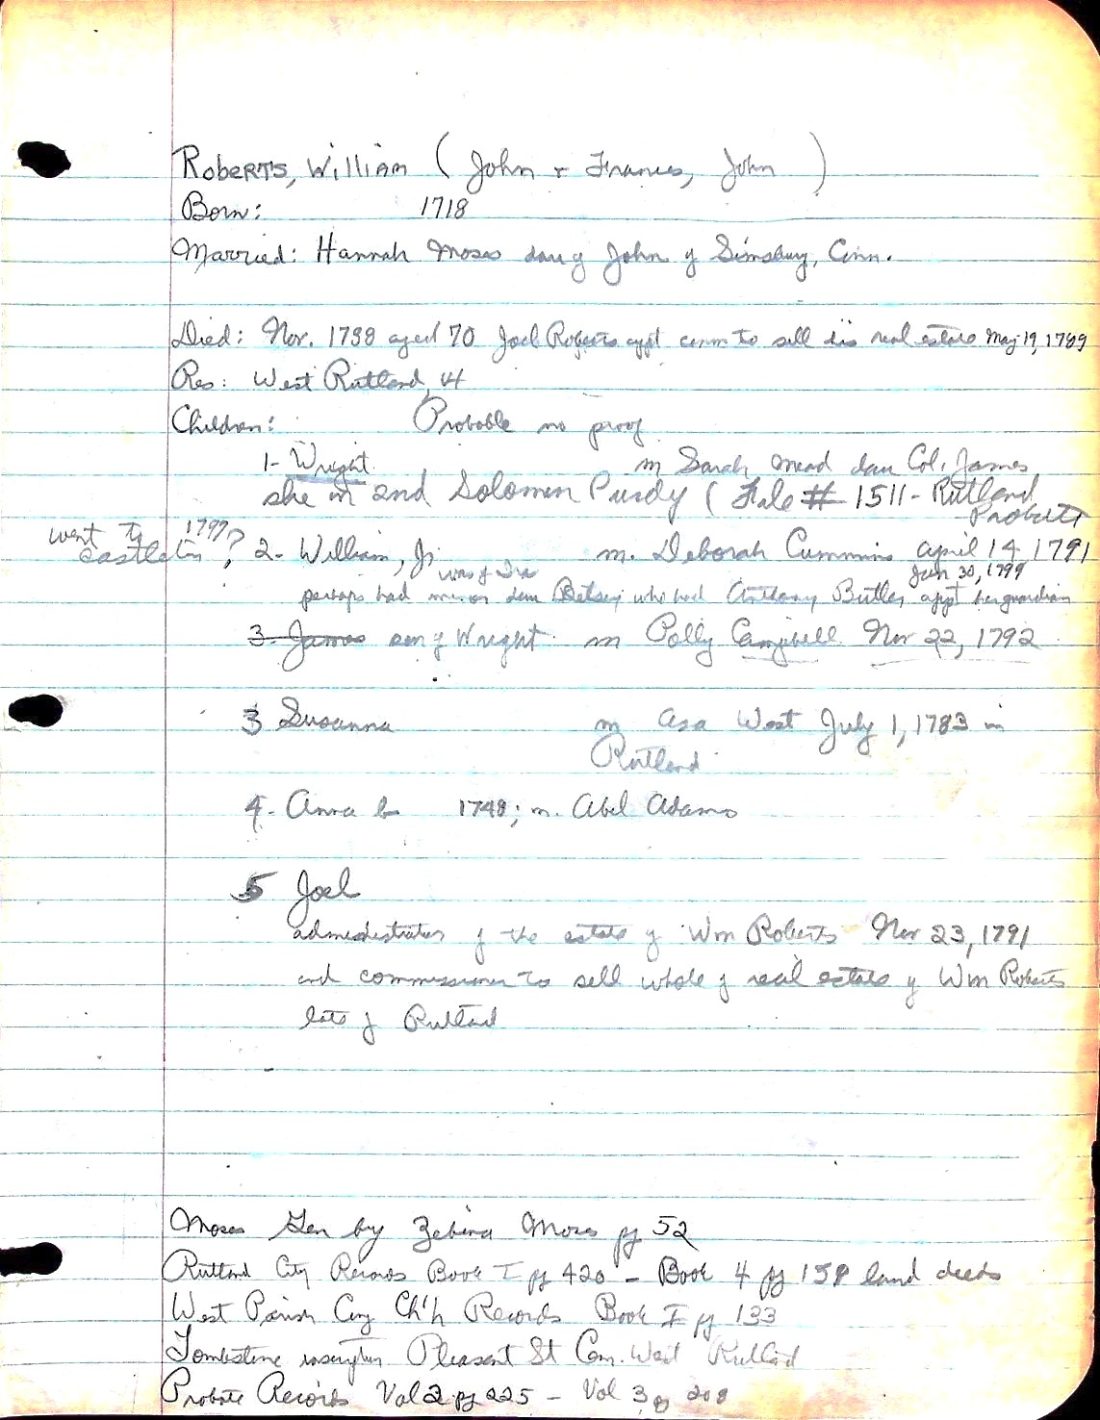 Roberts, William (John + Frances, John )
Born: 1718
Married: Hannah Moses dau of John of Simsbury, Conn.
Died: Nov. 1788 aged 70 Joel Roberts appt comm to sell his real estate May 19, 1789
Res: West Rutland, Vt
Children: Probable no proof
1- Wright m Sarah Mead dau Col. James
she m 2nd Solomon Purdy ( File # 1511 - Rutland
Probate
went to 1797?
Castleton ? 2- William, Jr m. Deborah Cummins April 14 1791
was of Ira Jan 30, 1799
perhaps had minor dau Betsey who had Anthony Butler appt her guardian
3- James son of Wright m Polly Campbell Nov 22, 1792
3 Susanna m Asa West July 1, 1783 in
Rutland
4- Anna b 1748; m. Abel Adams
5 Joel
administrator of the estate of Wm Roberts Nov 23, 1791
and commissioner to sell whole of real estate of Wm Roberts
late of Rutland
Moses Gen by Zebina Moses pg 52
Rutland City Records Book I pg 420 - Book 4 pg 158 land deeds
West Parish Cong Ch'h Records Book I pg 133
Tombstone inscription Pleasant St Cem. West Rutland
Probate Records Vol 2 pg 225 - Vol 3 pg 208